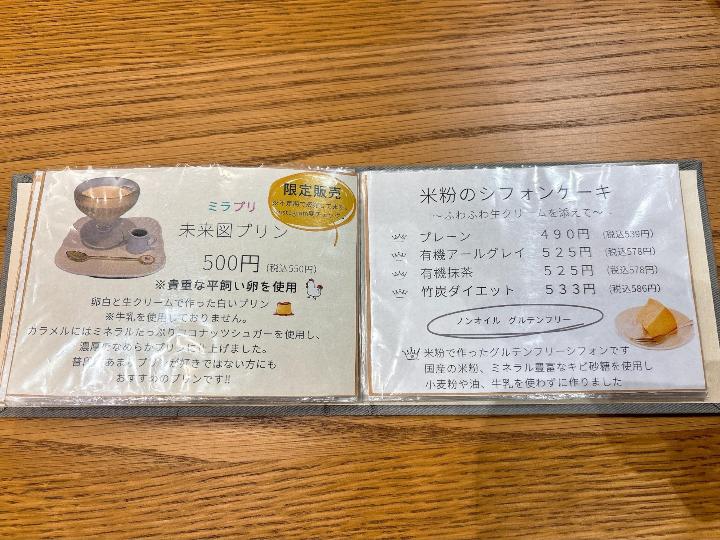 限定販売
ミラプリ
未来図プリン
500円 (税込550円)
※貴重な平飼い卵を使用
卵白と生クリームで作った白いプリン
※牛乳を使用しておりません。
カラメルにはミネラルたっぷりココナッツシュガーを使用し、
濃厚でなめらかプリンに仕上げました。
普段、あまりプリンが好きではない方にも
おすすめのプリンです!!
米粉のシフォンケーキ
～ふわふわ生クリームを添えて～
プレーン 490円 (税込539円)
有機アールグレイ 525円 (税込578円)
有機抹茶 525円 (税込578円)
竹炭ダイエット 533円 (税込586円)
ノンオイル グルテンフリー
米粉で作ったグルテンフリーシフォンです
国産の米粉、ミネラル豊富なキビ砂糖を使用し
小麦粉や油、牛乳を使わずに作りました